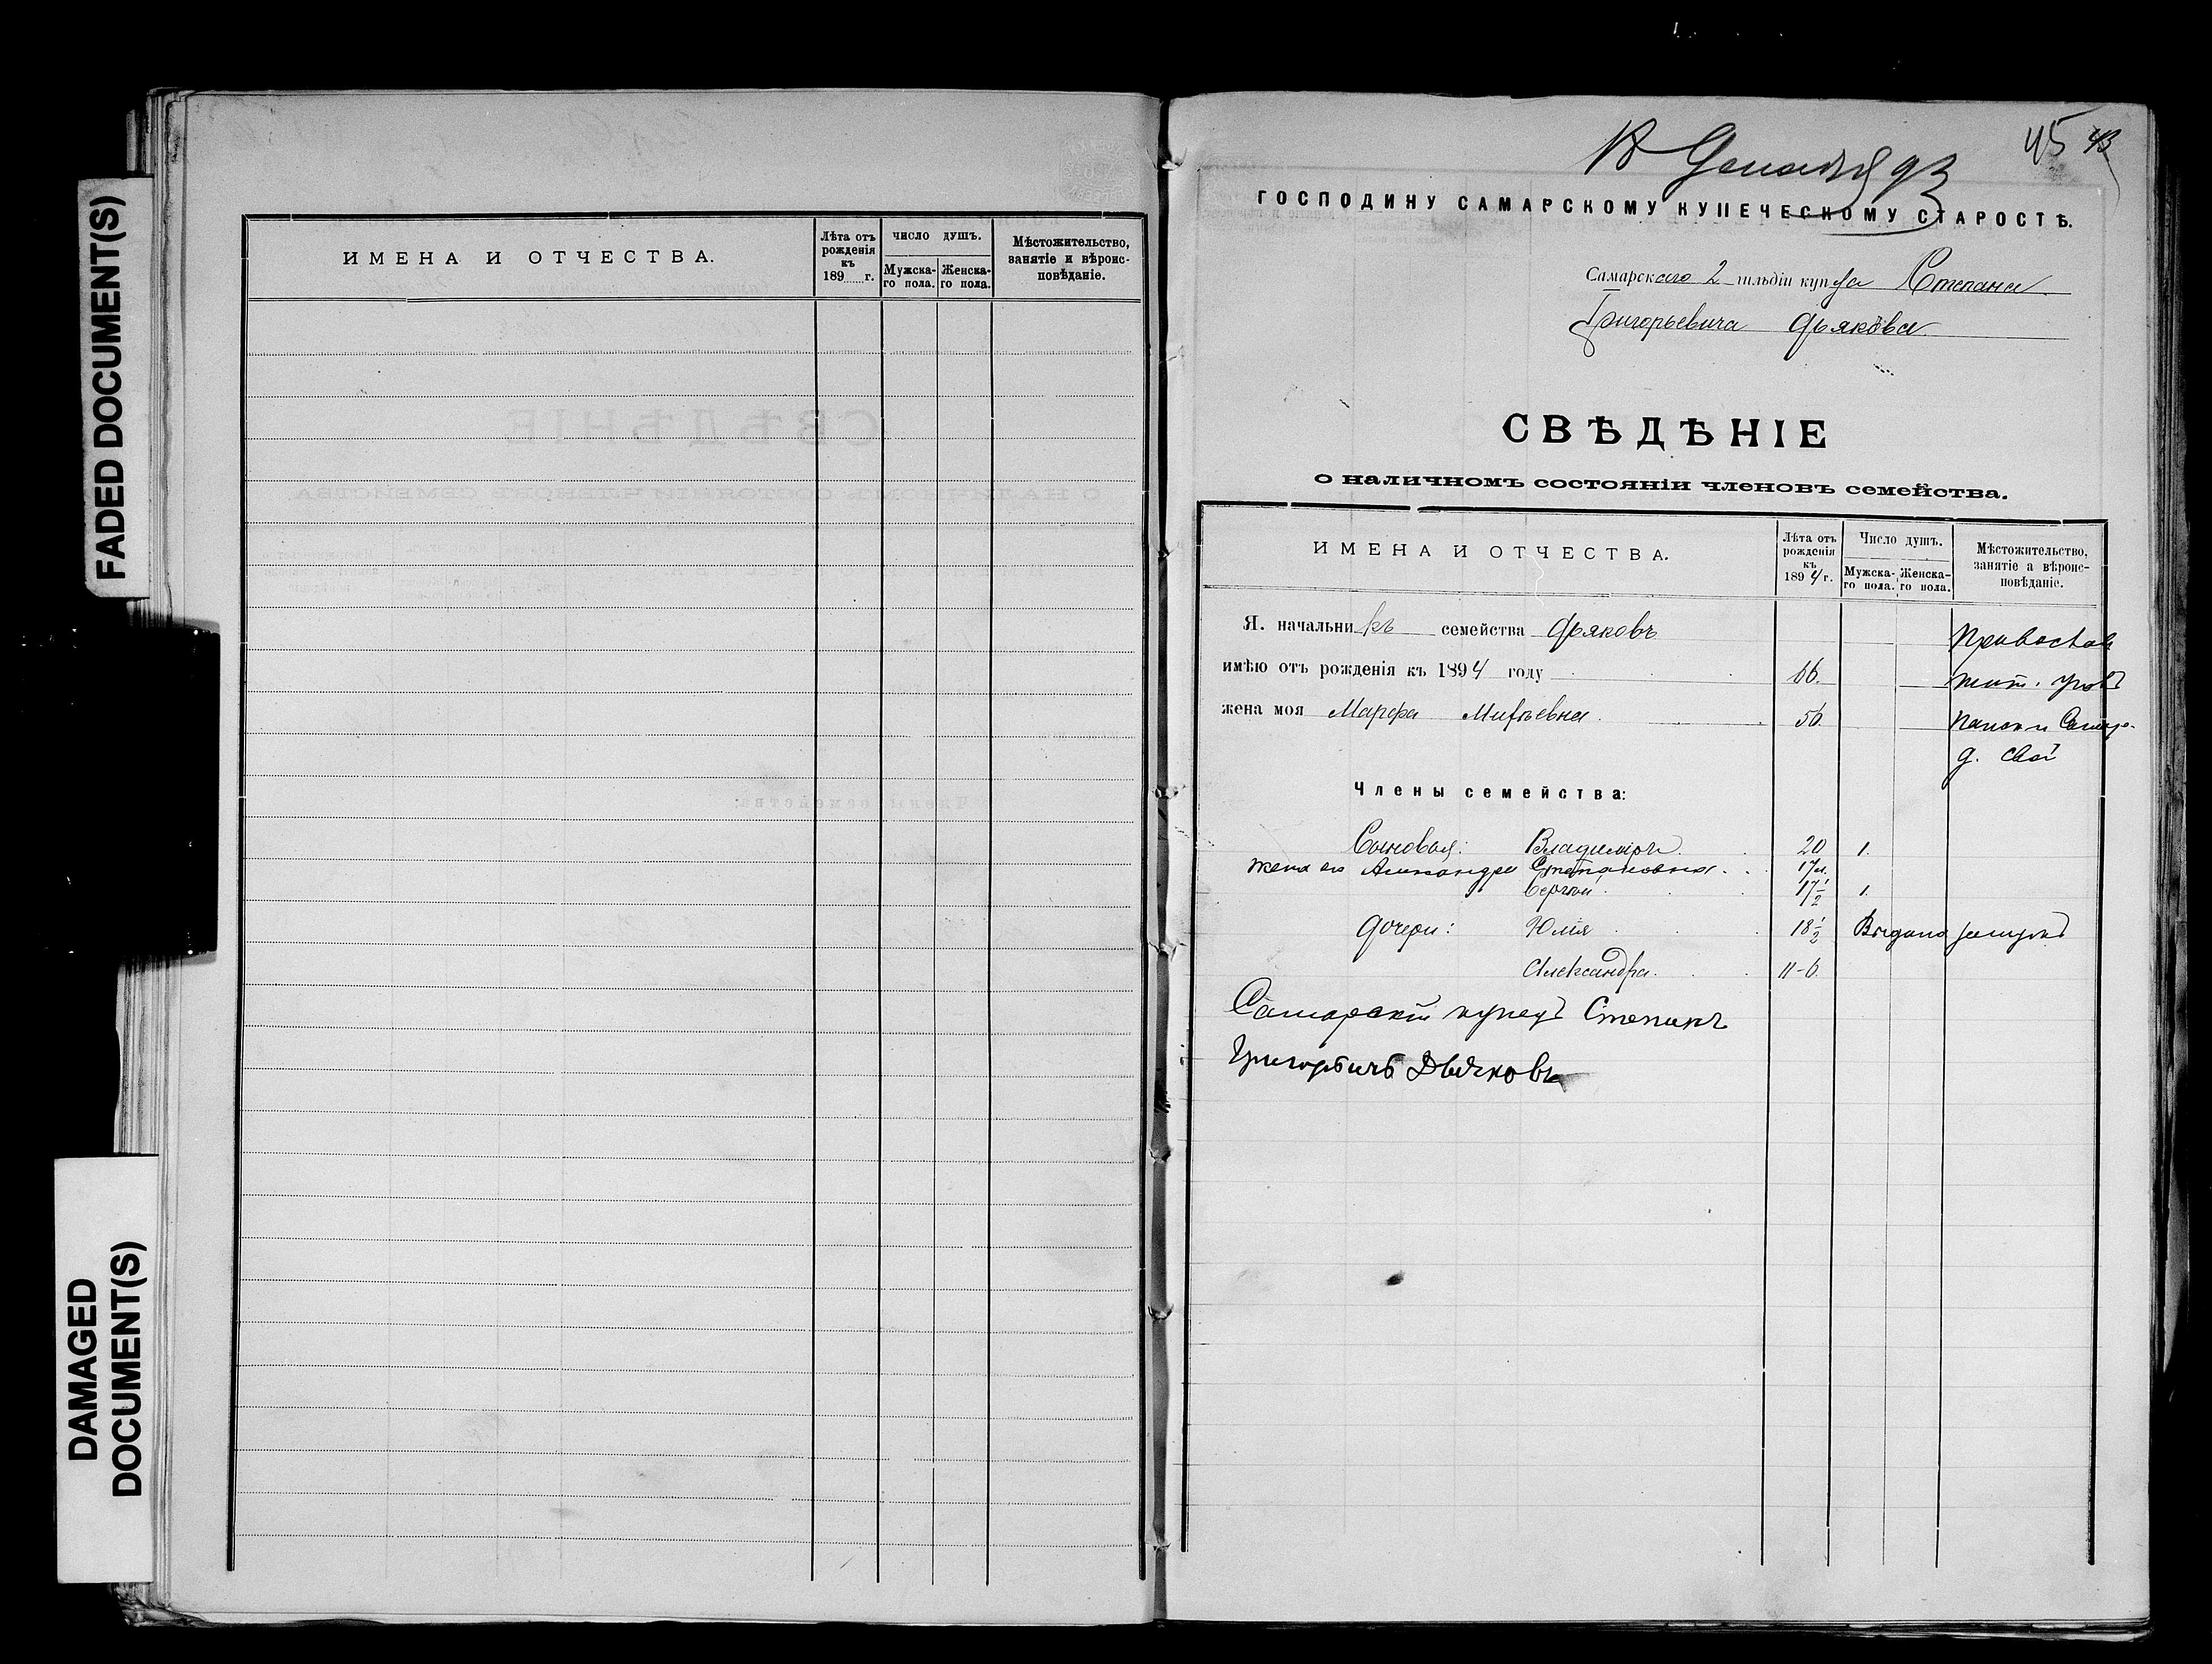 FADED DOCUMENT(S)
DAMAGED
DOCUMENT(S)
ИМЕНА И ОТЧЕСТВА.
Лѣта отъ
рожденія
къ
189 г.
ЧИСЛО ДУШЪ.
Мужска-
го пола.
Женска-
го пола.
Мѣстожительство,
занятіе и вѣроис-
повѣданіе.
45 43
18 Декабря 93
ГОСПОДИНУ САМАРСКОМУ КУПЕЧЕСКОМУ СТАРОСТѢ.
Самарскаго 2 гильдіи купца Степана
Григорьевича Дьякова
СВѢДѢНІЕ
о наличномъ состояніи членовъ семейства.
ИМЕНА И ОТЧЕСТВА.
Лѣта отъ
рожденія
къ
1894 г.
Число душъ.
Мужска-
го пола.
Женска-
го пола.
Мѣстожительство,
занятіе а вѣроис-
повѣданіе.
Я. начальникъ семейства Дьяковъ
имѣю отъ рожденія къ 1894 году
жена моя Марфа 56.
д. свой
Члены семейства:
Сыновья: Владиміръ 20 1.
жена его Александра Степановна 17 л.
Сергѣй 17 1/2 1.
Дочери: Юлія 18 1/2 Выдана замужъ
Александра. 11-6.
Самарскій купецъ Степанъ
Григорьичъ Дьячковъ